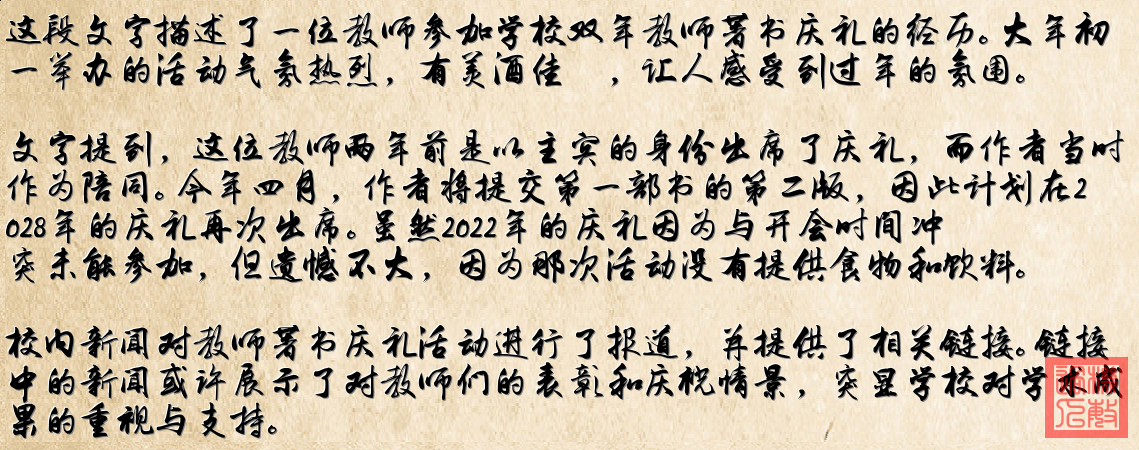 这段文字描述了一位教师参加学校双年教师著书庆礼的经历。大年初
一举办的活动气氛热烈，有美酒佳　，让人感受到过年的氛围。
文字提到，这位教师两年前是以主宾的身份出席了庆礼，而作者当时
作为陪同。今年四月，作者将提交第一部书的第二版，因此计划在2
028年的庆礼再次出席。虽然2022年的庆礼因为与开会时间冲
突未能参加，但遗憾不大，因为那次活动没有提供食物和饮料。
校内新闻对教师著书庆礼活动进行了报道，并提供了相关链接。链接
中的新闻或许展示了对教师们的表彰和庆祝情景，突显学校对学术成
果的重视与支持。